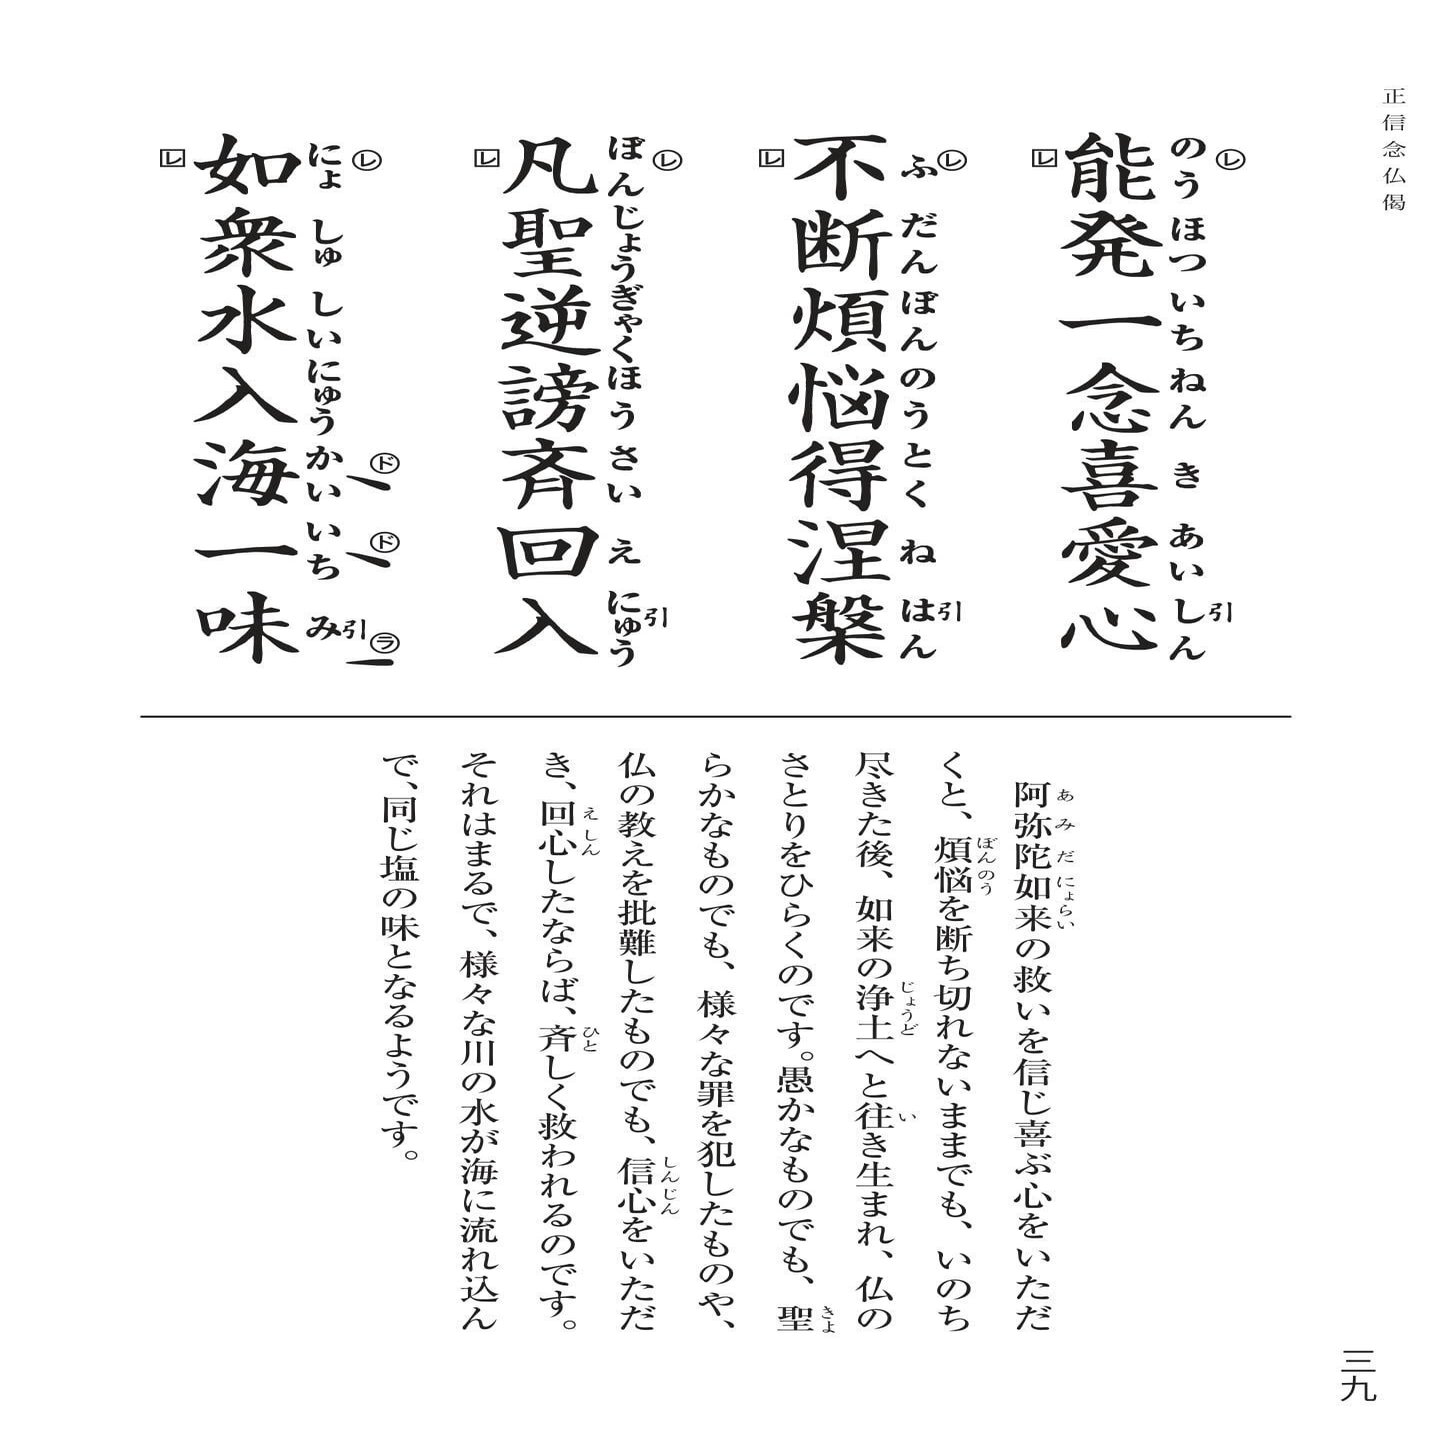 正信念仏偈
能発一念喜愛心
のうほついちねんきあいしん
レ
レ
引
不断煩悩得涅槃
ふだんぼんのうとくねはん
レ
レ
引
凡聖逆謗斉回入
ぼんじょうぎゃくほうさいえにゅう
レ
レ
引
如衆水入海一味
にょしゅしいにゅうかいいちみ
レ
レ
ド
ド
引
ラ
阿弥陀如来の救いを信じ喜ぶ心をいただ
あみだにょらい
くと、煩悩を断ち切れないままでも、いのち
ぼんのう
尽きた後、如来の浄土へと往き生まれ、仏の
じょうど
い
さとりをひらくのです。愚かなものでも、聖
きよ
らかなものでも、様々な罪を犯したものや、
仏の教えを批難したものでも、信心をいただ
しんじん
き、回心したならば、斉しく救われるのです。
えしん
ひと
それはまるで、様々な川の水が海に流れ込ん
で、同じ塩の味となるようです。
三九